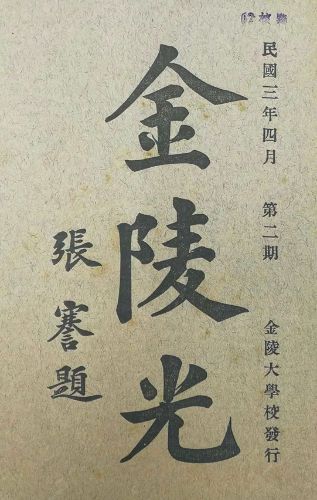 民國三年四月 第二期 金陵大學校發行
金陵光
張謇題